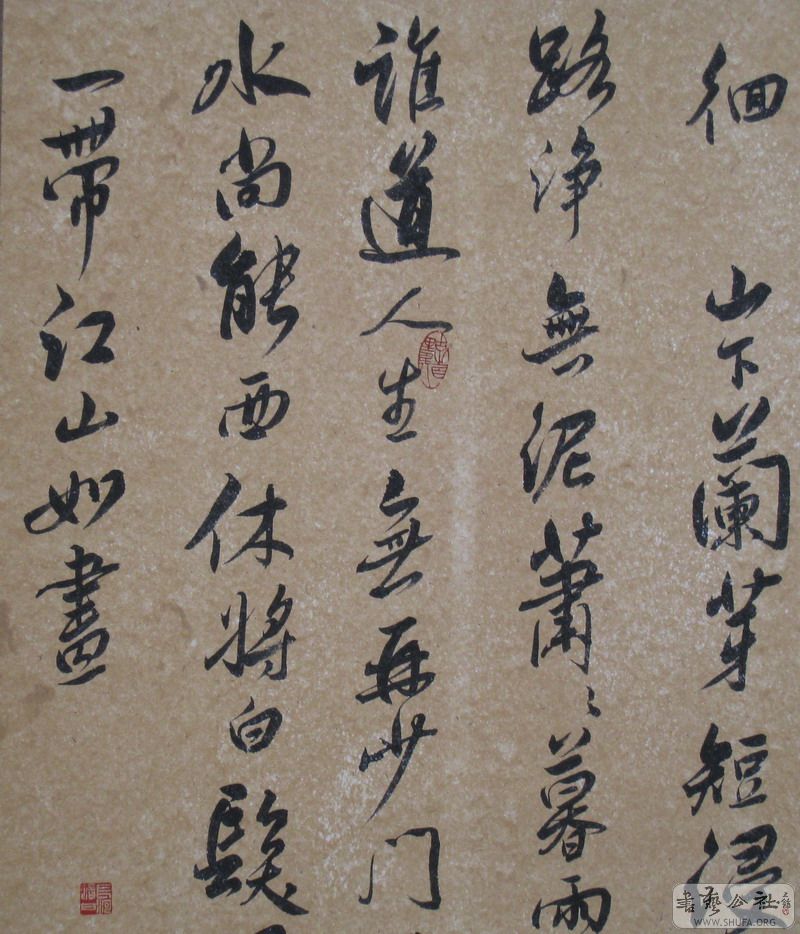 徊 山下蘭芽短浸
路淨無泥蕭〻暮雨
誰道人生無再少门
水尚能西休將白髮
一帶江山如畫
書藝公社
WWW.SHUFA.ORG